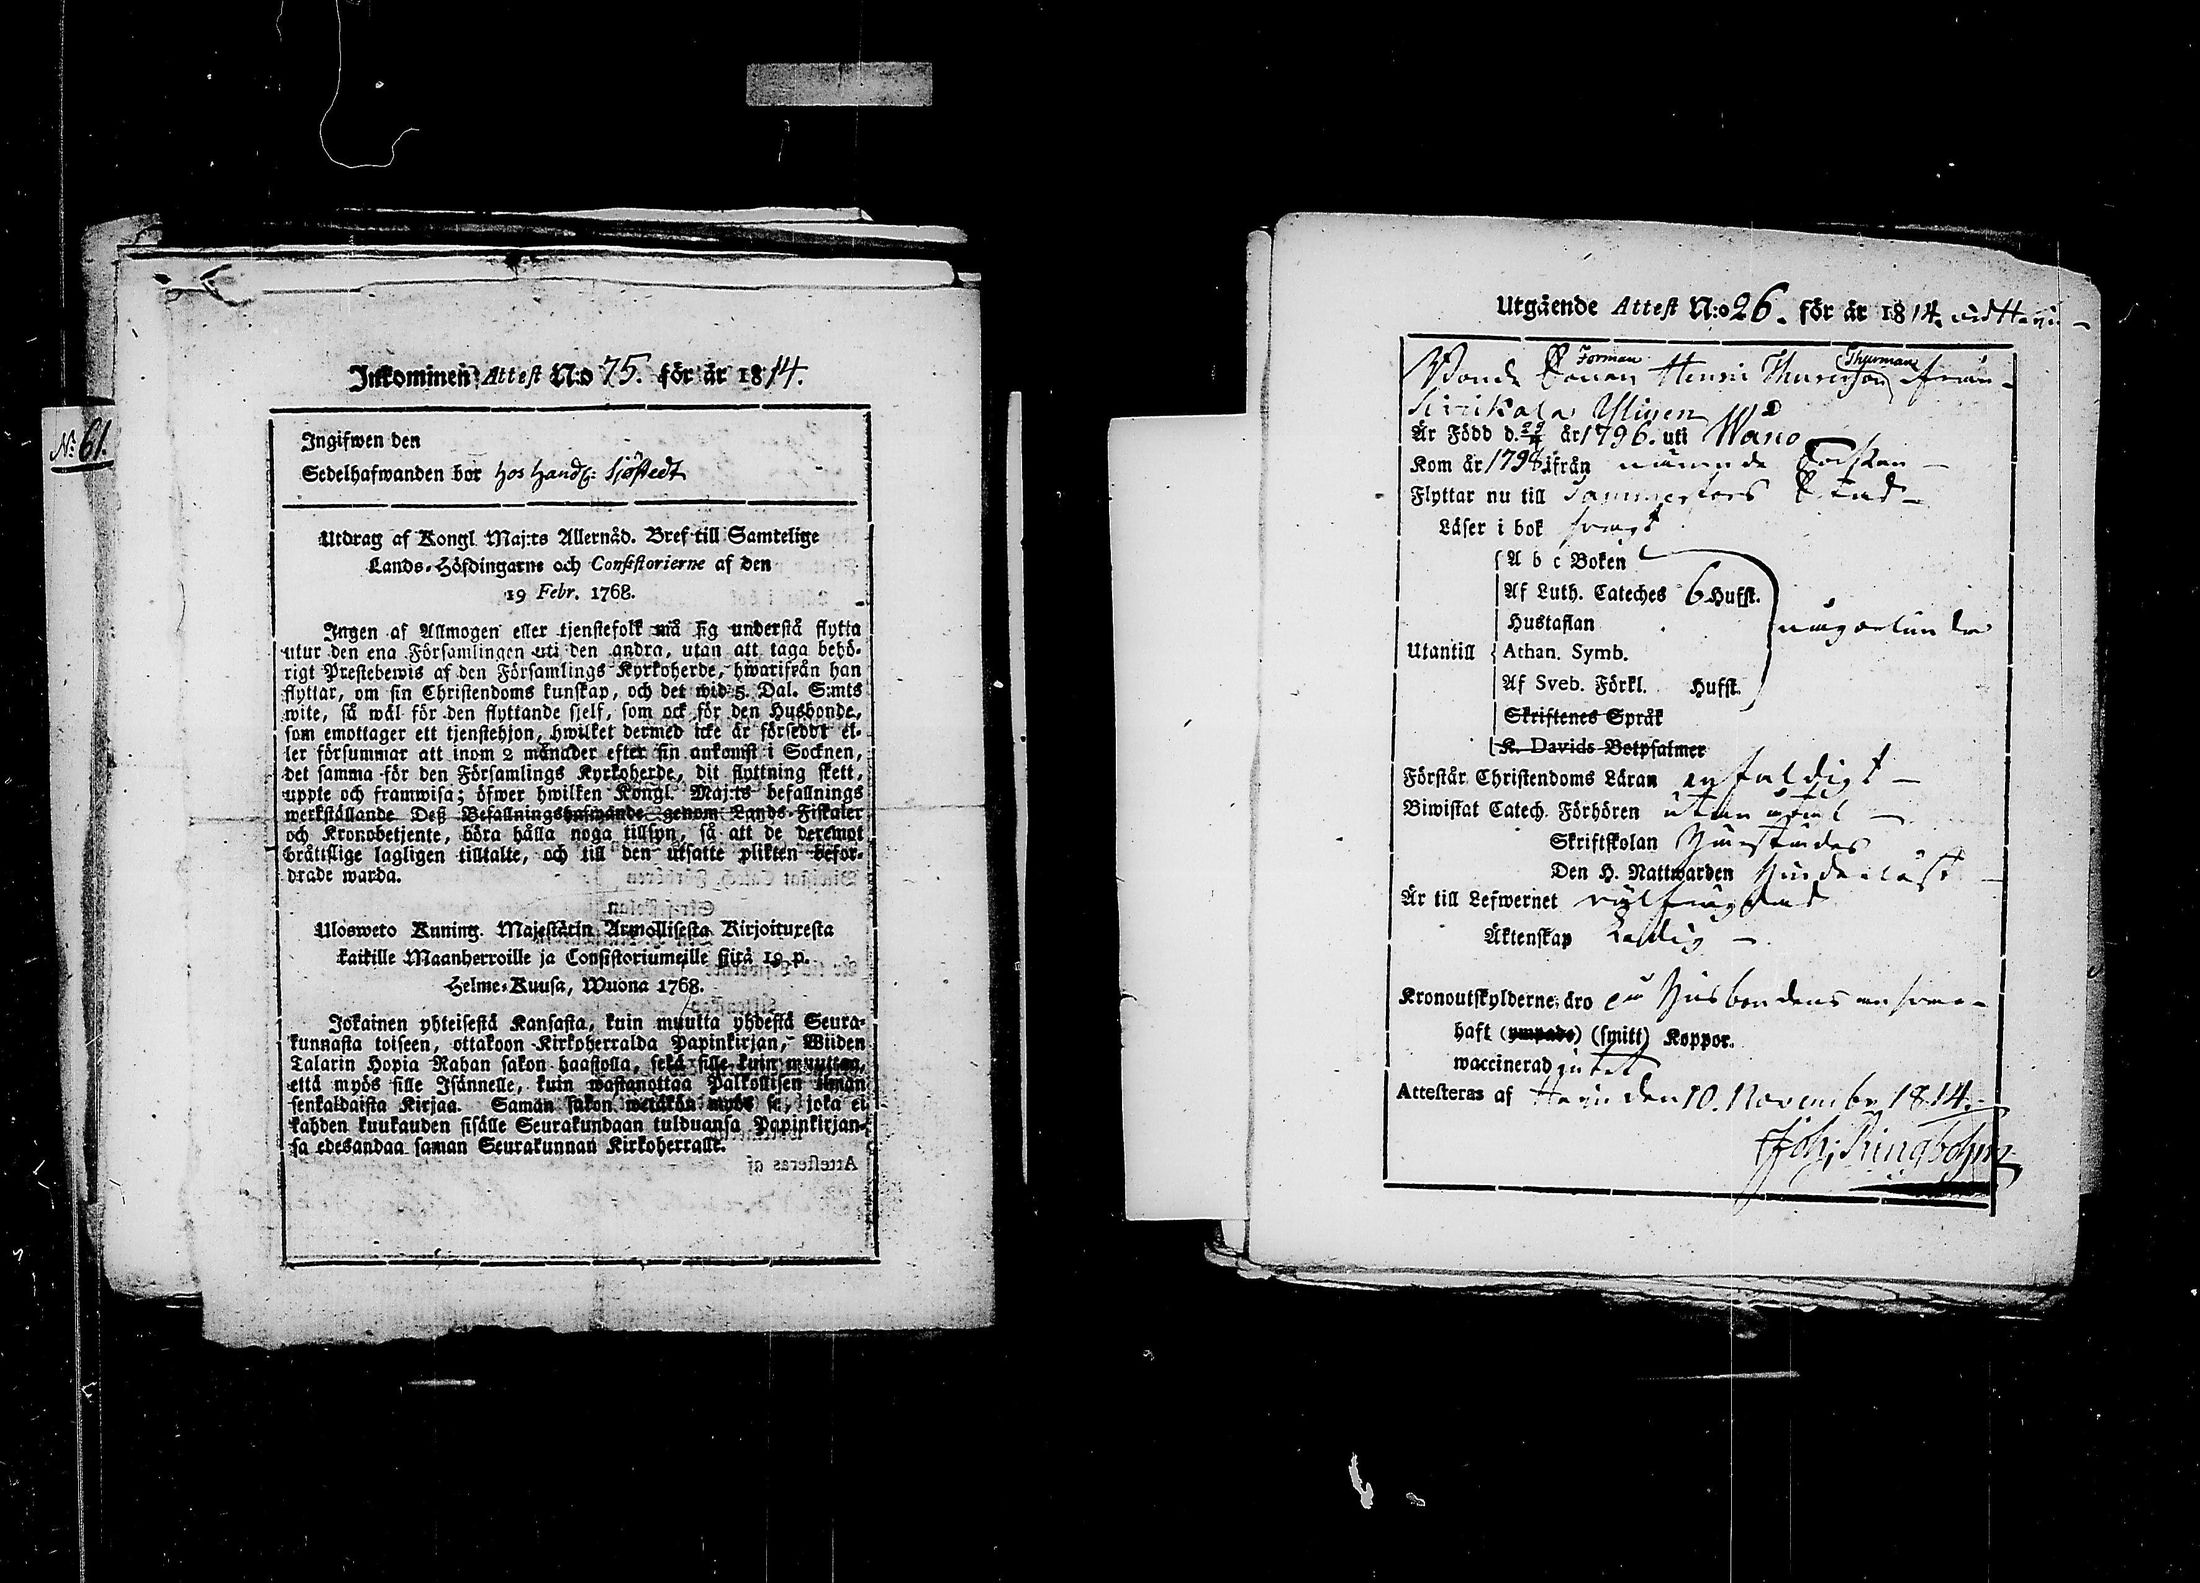 N:o 61.
Inkommen Attest N:o 75. för år 1814.
Ingifwen den
Sedelhafwanden bor hos Handl: Sjöstedt
Utdrag af Kongl. Maj:ts Allernåd. Bref till Samtelige
Lands-Höfdingarne och Consistorierne af den
19 Febr. 1768.
Ingen af Allmogen eller tjenstefolk må sig understå flytta
utur den ena Församlingen uti den andra, utan att taga behö-
rigt Prestebewis af den Församlings Kyrkoherde, hwarifrån han
flyttar, om sin Christendoms kunskap, och det wid 5. Dal. S:mts
wite, så wäl för den flyttande sjelf, som ock för den Husbonde,
som emottager ett tjenstehjon, hwilket dermed icke är försedt el-
ler försummar att inom 2 månader efter sin ankomst i Socknen,
det samma för den Församlings Kyrkoherde, dit flyttning skett,
uppte och framwisa; öfwer hwilken Kongl. Maj:ts befallnings
werkställande Deß Befallningshafwande genom Lands-Fiskaler
och Kronobetjente, böra hålla noga tillsyn, så att de deremot
bråttslige lagligen tilltalte, och till den utsatte plikten befor-
drade warda.
Ulosweto Kuning. Majestätin Armollisesta Kirjoituxesta
kaikille Maanherroille ja Consistoriumeille siitä 19 p.
Helme-Kuusa, Wuona 1768.
Jokainen yhteisestä Kansasta, kuin muutta yhdestä Seura-
kunnasta toiseen, ottakoon Kirkoherralda Papinkirjan, Wiiden
Talarin Hopia Rahan sakon haastolla, sekä sille kuin muuttaa,
että myös sille Isännelle, kuin wastanottaa Palkollisen ilman
senkaldaista Kirjaa. Saman sakon wetäkän myös se, joka ei
kahden kuukauden sisälle Seurakundaan tulduansa Papinkirjan-
sa edesandaa saman Seurakunnan Kirkoherralle.
Utgående Attest N:o 26. för år 1814. wid
Forman Thurman
Bonde Sonen Henric Thureson från
Kirikala Yliset
Är Född d. år 1796. uti Wåno
Kom år 1798 ifrån nämnde Socken
Flyttar nu till Tammerfors Stad
Läser i bok swagt
A b c Boken
Af Luth. Cateches 6 Hufst.
Hustaflan
någorlunda
Utantill Athan. Symb.
Af Sveb. Förkl. Hufst.
Skriftenes Språk
K. Davids Botpsalmer
Förstår Christendoms Läran enfaldigt
Biwistat Catech. Förhören
Skriftskolan
Den H. Nattwarden
Är till Lefwernet wälfrägdad
Äktenskap Ledig
Kronoutskylderne äro på Husbondens answar
haft (ympade) (smitt) Koppor.
waccinerad
Attesteras af den 10. November 1814.
Joh: Ringbohm